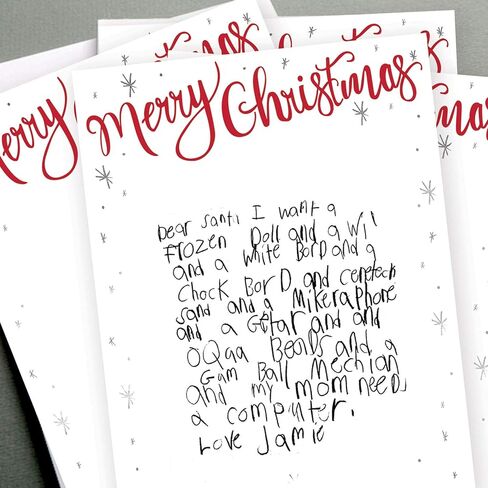 Merry Christmas
Merry
mas
Dear Santi I want a
FROZEN Doll and a Wii
and a white BorD and a
Chock Bor D and cenetech
sand and a Mikeraphone
and a Getar and and
OQaa Beads and a
Gam Ball Mechian
and my mom need
a computer.
Love Jamie